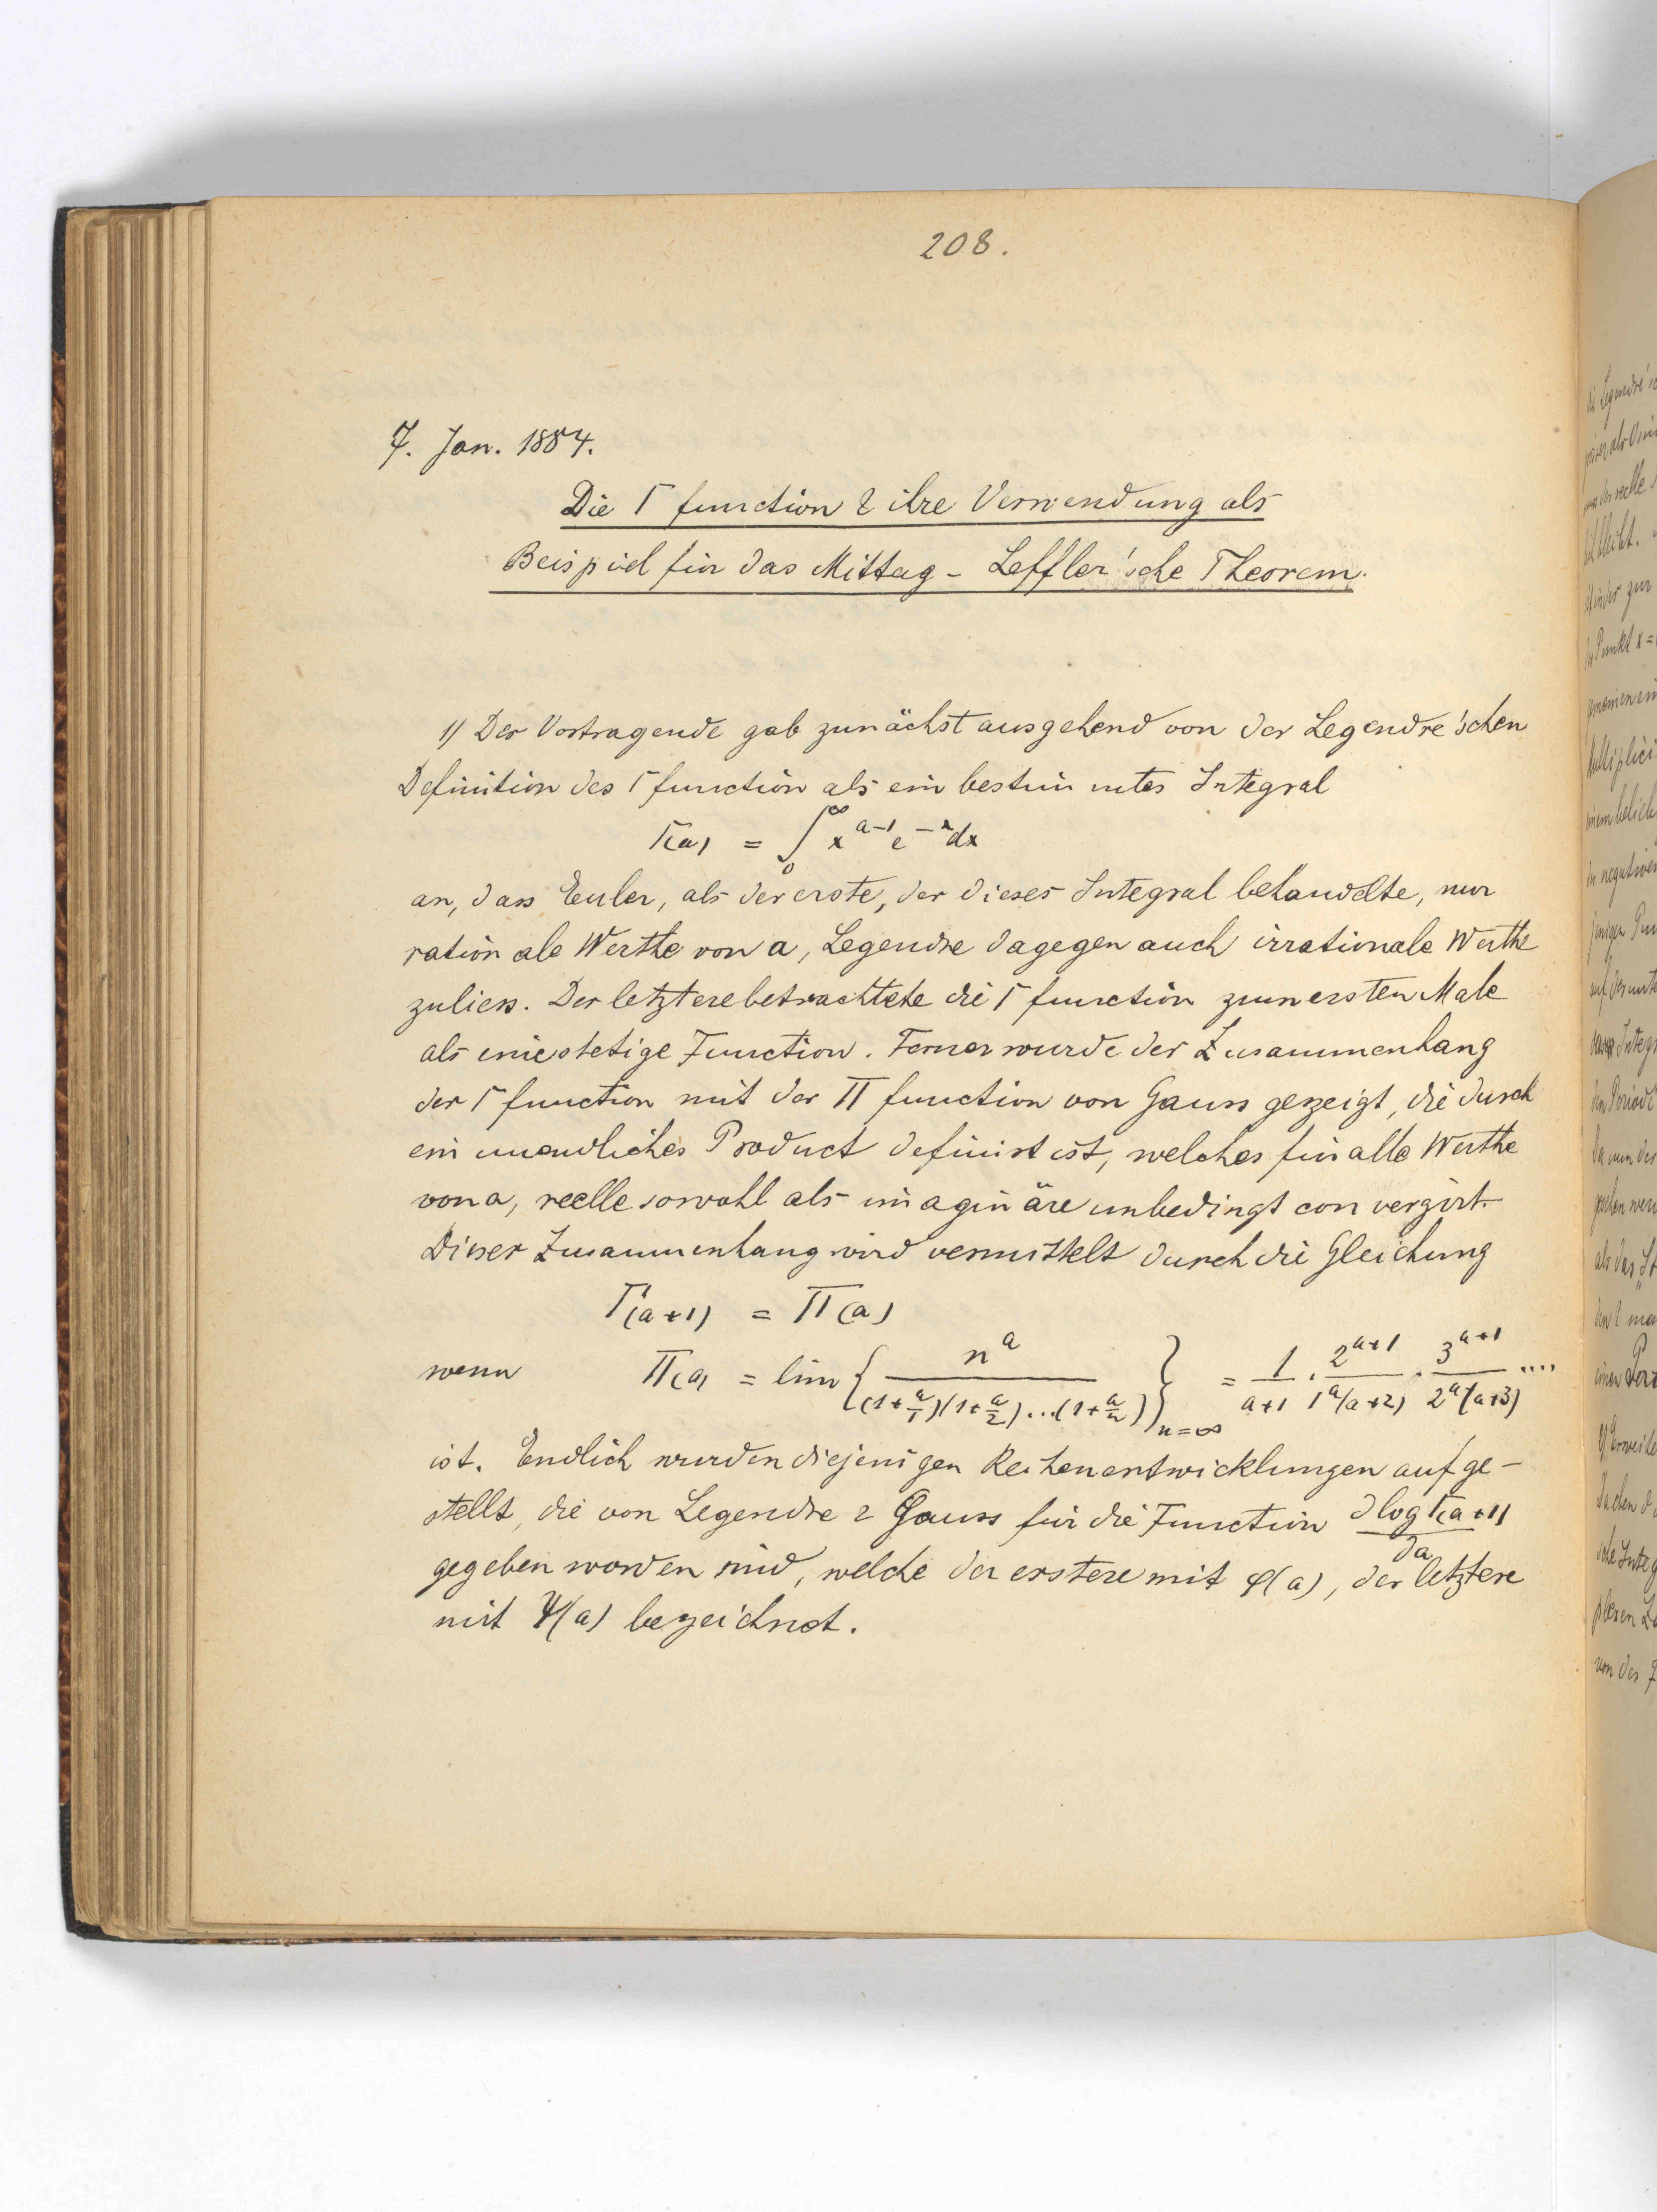 208.
7. Jan. 1884.
Die Γ function & ihre Verwendung als
Beispiel für das Mittag-Leffler'sche Theorem.
1) Der Vortragende gab zunächst ausgehend von der Legendre'schen
Definition der Γ function als ein bestimmtes Integral
Γ(a) = ∫₀^∞ x^{a-1} e^{-x} dx
an, dass Euler, als der erste, der dieses Integral behandelte, nur
rationale Werthe von a, Legendre dagegen auch irrationale Werthe
zuliess. Der letztere betrachtete die Γ function zum ersten Male
als eine stetige Function. Ferner wurde der Zusammenhang
der Γ function mit der Π function von Gauss gezeigt, die durch
ein unendliches Product definirt ist, welches für alle Werthe
von a, reelle sowohl als imaginäre unbedingt convergirt.
Dieser Zusammenhang wird vermittelt durch die Gleichung
Γ(a+1) = Π(a)
wenn Π(a) = lim { n^a / (1+a/1)(1+a/2)...(1+a/n) }_{n=∞} = 1/(a+1) · 2^{a+1}/1^a(a+2) · 3^{a+1}/2^a(a+3) ....
ist. Endlich wurden diejenigen Reihenentwicklungen aufge-
stellt, die von Legendre & Gauss für die Function ∂logΓ(a+1)/∂a
gegeben worden sind, welche der erstere mit φ(a), der letztere
mit Ψ(a) bezeichnet.